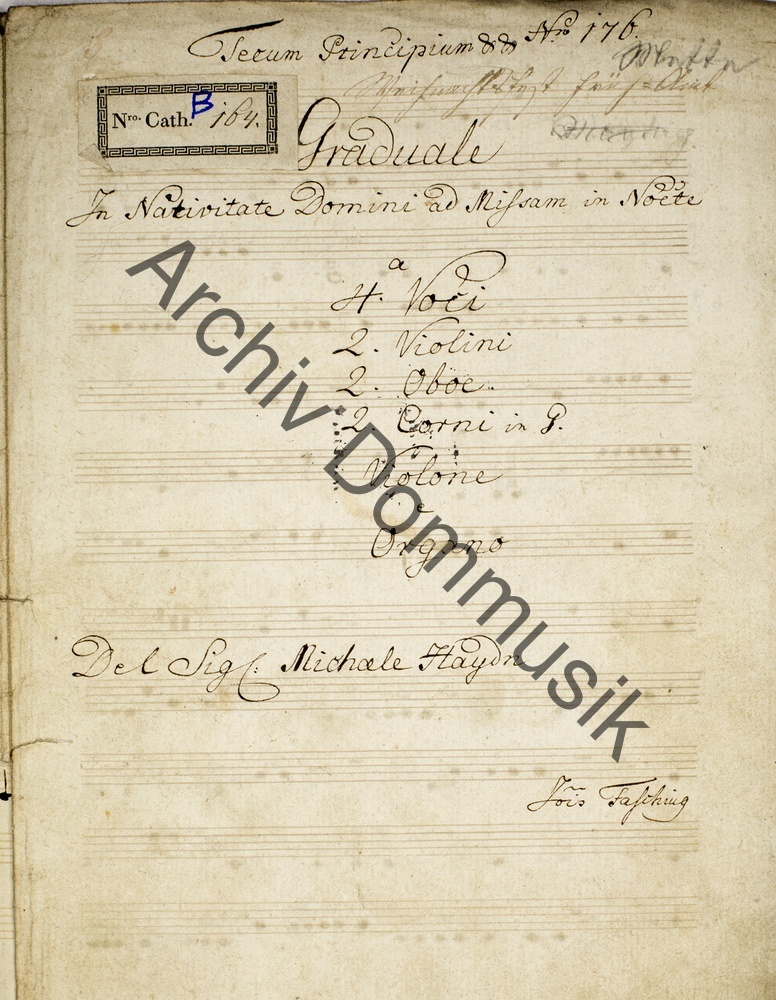 Tecum Principium && Nro 176.
Mette
Weihnachtsfest Früh-Amt
Nro. Cath. B 164.
Graduale
In Nativitate Domini ad Missam in Nocte
a
4. Voci
2. Violini
2. Oboe.
2. Corni in G.
Violone
e
Organo
Del Sig: Michæle Haydn
Jois Fasching
Archiv Dommusik